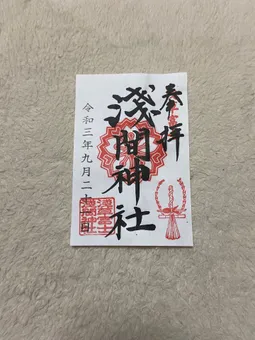 奉拝
淺間神社
令和三年九月二十四日